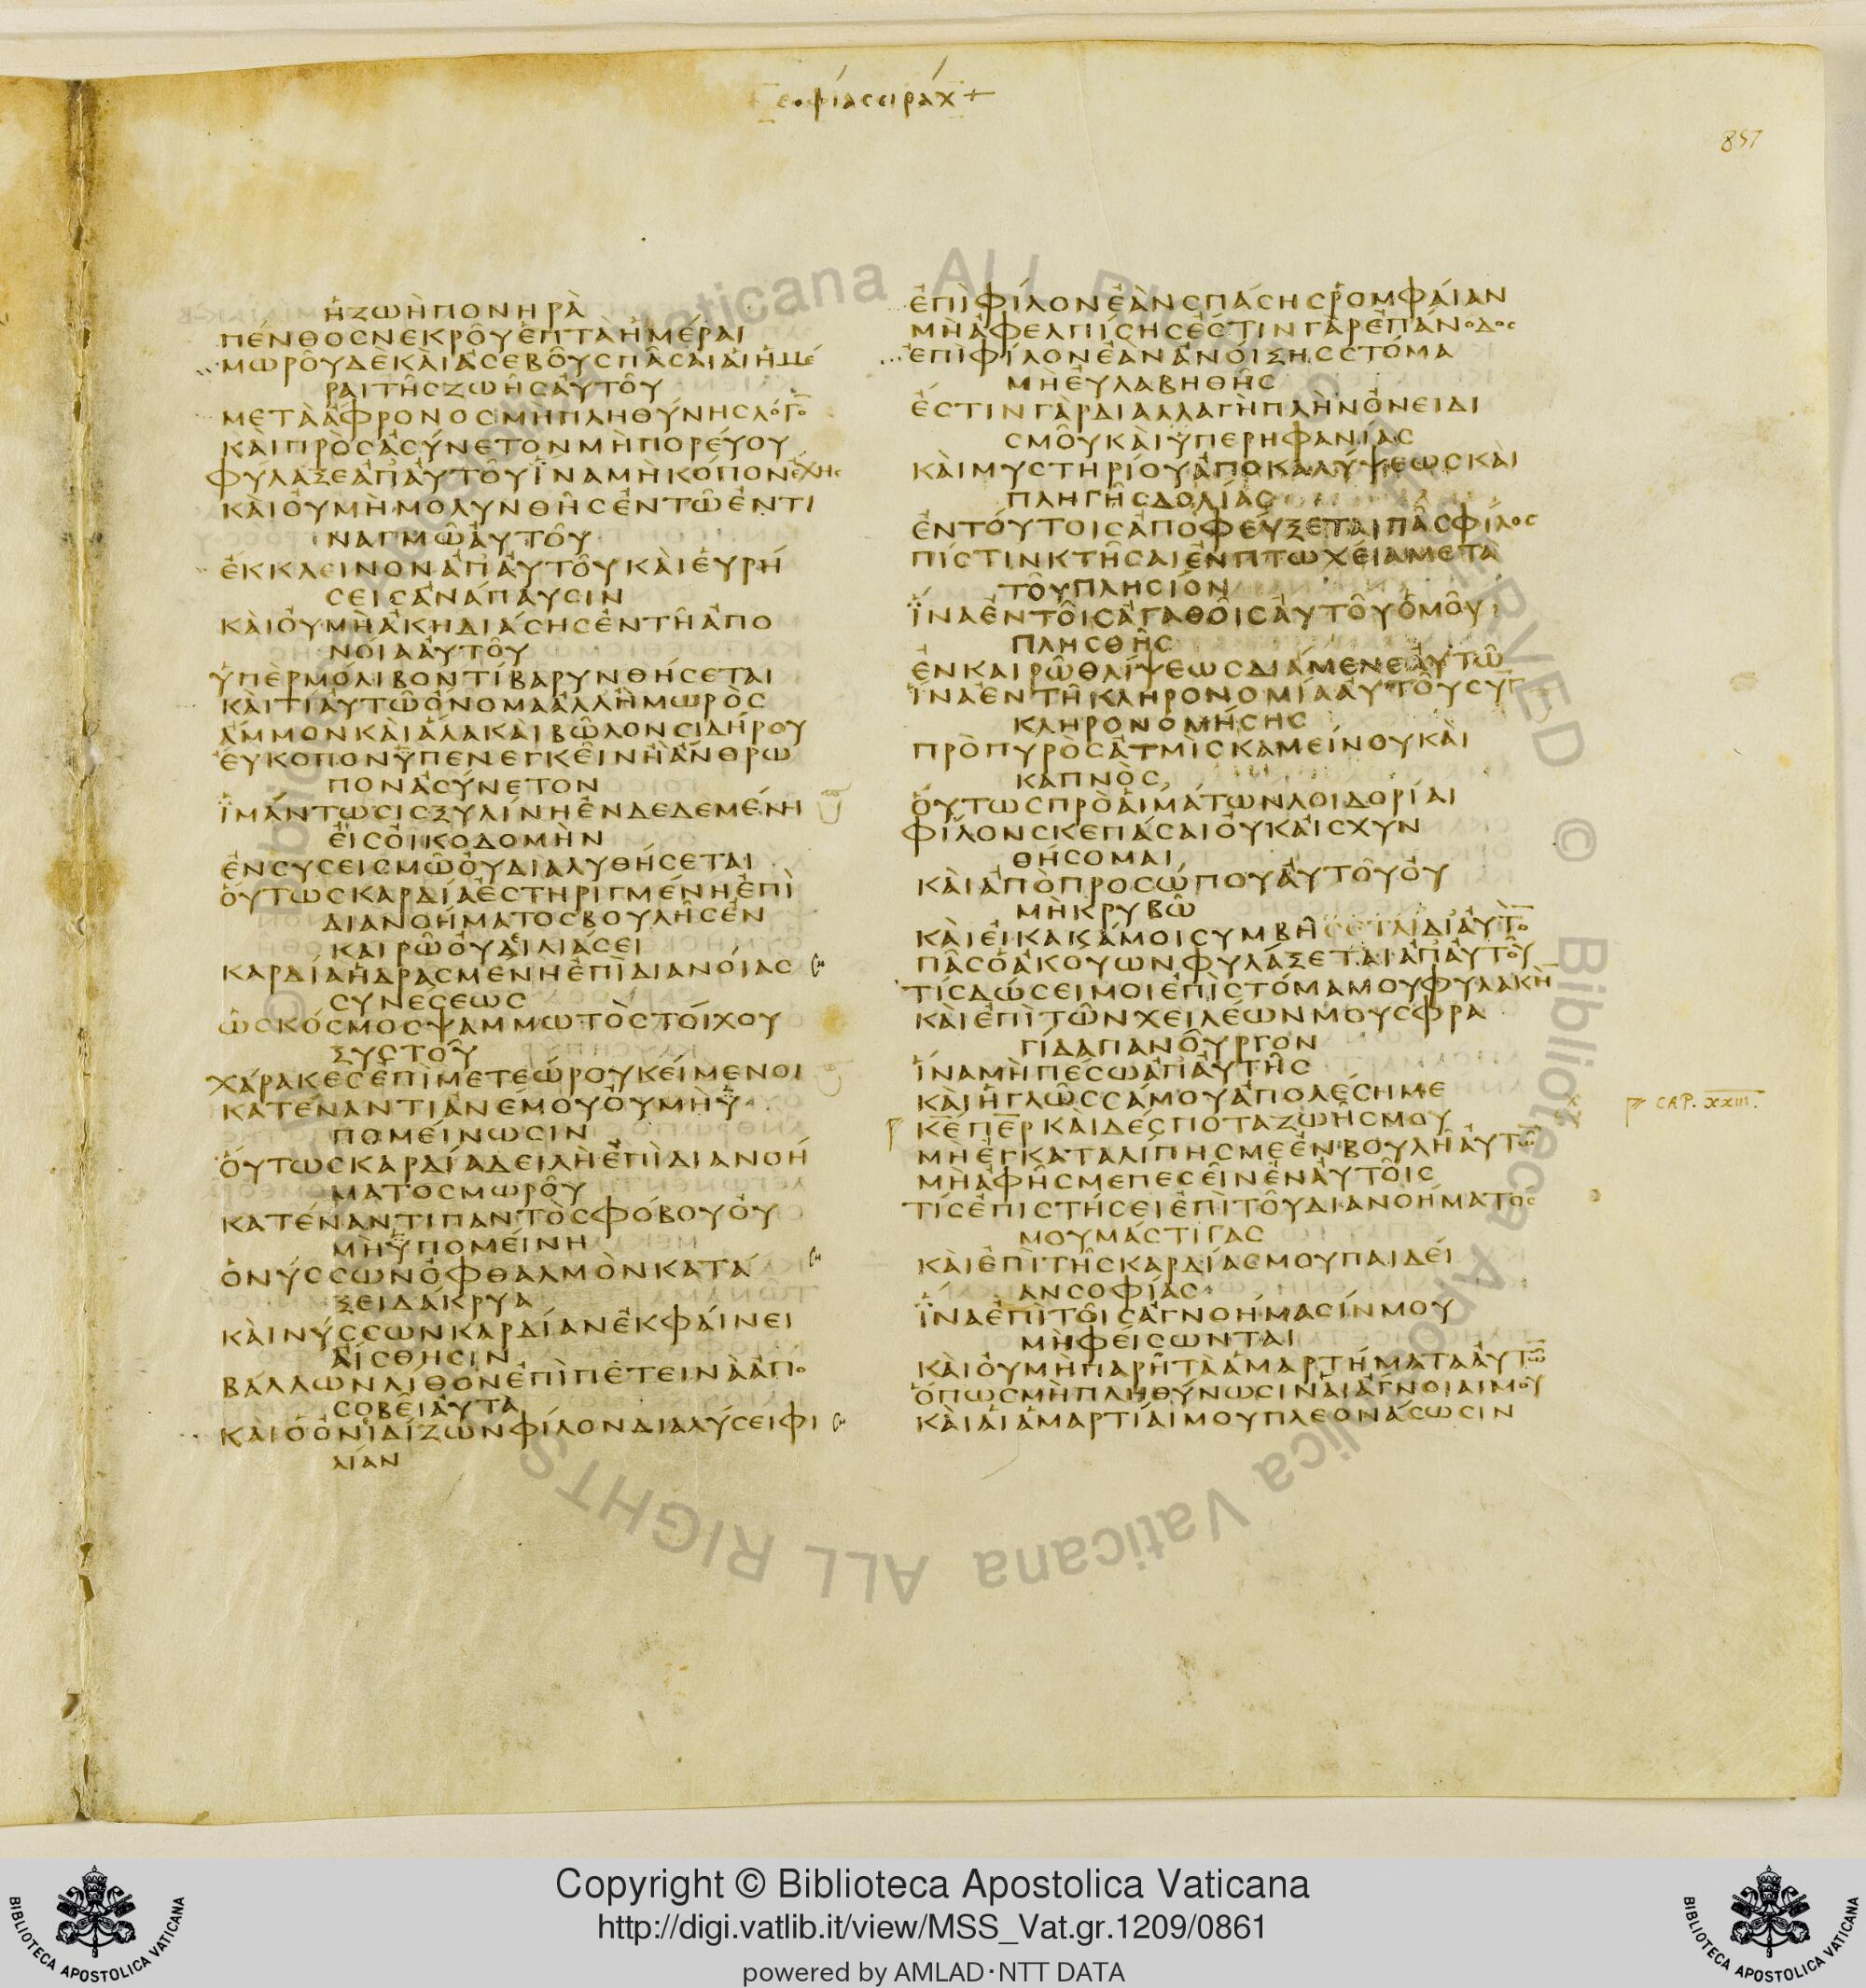 σοφίασειράχ
857
ἡζωὴπονηρὰ
πένθοσνεκροῦἑπτὰἡμέραι
μωροῦδεκαὶἀσεβοῦσπᾶσαιαἱἡμέ
ραιτῆσζωῆσαὐτοῦ
μετὰἄφρονοσμὴπληθύνησλόγο̅
καὶπρὸσἀσύνετονμὴπορεύου
φύλαξεἀπ'αὐτοῦἵναμὴκόπονἔχησ
καὶοὐμὴμολυνθῇσἐντῷἐντι
ναγμῷαὐτοῦ
ἔκκλεινονἀπ'αὐτοῦκαὶεὑρή
σεισἀνάπαυσιν
καὶοὐμὴἀκηδιάσησἐντῇἀπο
νοίααὐτοῦ
ὑπὲρμόλιβοντίβαρυνθήσεται
καὶτίαὐτῷὄνομαἀλλ'ἢμωρὸσ
ἄμμονκαὶἅλακαὶβῶλονσιδήρου
εὔκοπονὑπενεγκεῖνἢἄνθρω
πονἀσύνετον
ἱμάντωσισξυλίνηἐνδεδεμένη
εἰσοἰκοδομὴν
ἐνσυσεισμῷοὐδιαλυθήσεται
οὕτωσκαρδίαἐστηριγμένηἐπὶ
διανοήματοσβουλῆσἐν
καιρῷοὐδιλιάσει
καρδίαἡδρασμένηἐπὶδιανοίασ
συνέσεωσ
ὡσκόσμοσψαμμωτὸστοίχου
ξυστοῦ
χάρακεσἐπὶμετεώρουκείμενοι
κατέναντιἀνεμουοὐμὴὑ
πομείνωσιν
οὕτωσκαρδίαδειλὴἐπὶδιανοή
ματοσμωροῦ
κατέναντιπαντὸσφόβουοὐ
μὴὑπομείνη
ὁνύσσωνὀφθαλμὸνκατά
ξειδάκρυα
καὶνύσσωνκαρδίανἐκφαίνει
αἴσθησιν
βάλλωνλίθονἐπὶπέτεινὰἀπο
σοβεῖαὐτὰ
καὶὁὀνιδίζωνφίλονδιαλύσειφι
λίαν
ἐπὶφίλονἐὰνσπάσησρομφαίαν
μὴἀφελπίσησἔστινγὰρἐπάνοδοσ
ἐπὶφίλονἐὰνἀνοίξησστόμα
μὴεὐλαβηθῇσ
ἔστινγὰρδιαλλαγὴπλὴνὀνειδι
σμοῦκαὶὑπερηφανίασ
καὶμυστηρίουἀποκαλύψεωσκαὶ
πληγῆσδολίασ
ἐντούτοισἀποφεύξεταιπᾶσφίλοσ
πίστινκτῆσαιἐνπτωχείαμετὰ
τοῦπλησίον
ἵναἐντοῖσἀγαθοῖσαὐτοῦὁμοῦ
πλησθῇσ
ἐνκαιρῷθλίψεωσδιάμενεαὐτῷ
ἵναἐντῇκληρονομίααὐτοῦσυγ
κληρονομήσησ
πρὸπυρὸσἀτμὶσκαμείνουκαὶ
καπνὸσ
οὕτωσπρὸαἱμάτωνλοιδορίαι
φίλονσκεπάσαιοὐκαἰσχυν
θήσομαι
καὶἀπὸπροσώπουαὐτοῦοὐ
μὴκρυβῶ
καὶεἰκακάμοισυμβήσεταιδι'αὐτὸ̅
πᾶσὁἀκουωνφυλάξεταιἀπ'αὐτοῦ
τίσδώσειμοιἐπὶστόμαμουφυλακὴ̅
καὶἐπὶτῶνχειλέωνμουσφρα
γίδαπανοῦργον
ἵναμὴπέσωἀπ'αὐτῆσ
καὶἡγλῶσσάμουἀπολέσημε
κ̅ε̅π̅ε̅ρ̅καὶδέσποταζωῆσμου
μὴἐγκαταλίπησμεἐνβουλῇαὐτῶ̅
μὴἀφῇσμεπεσεῖνἐναὐτοῖσ
τίσἐπιστήσειἐπὶτοῦδιανοήματοσ
μουμάστιγασ
καὶἐπὶτῆσκαρδίασμουπαιδεί
ανσοφίασ
ἵναἐπὶτοῖσἀγνοήμασίνμου
μὴφείσωνται
καὶοὐμὴπαρῇτὰἁμαρτήματααὐτῶ̅
ὅπωσμὴπληθύνωσιναἱἄγνοιαιμου
καὶαἱἁμαρτίαιμουπλεονάσωσιν
CAP. XXIII.
Copyright © Biblioteca Apostolica Vaticana
http://digi.vatlib.it/view/MSS_Vat.gr.1209/0861
powered by AMLAD·NTT DATA
BIBLIOTECA APOSTOLICA VATICANA
BIBLIOTECA APOSTOLICA VATICANA
© Biblioteca Apostolica Vaticana ALL RIGHTS RESERVED